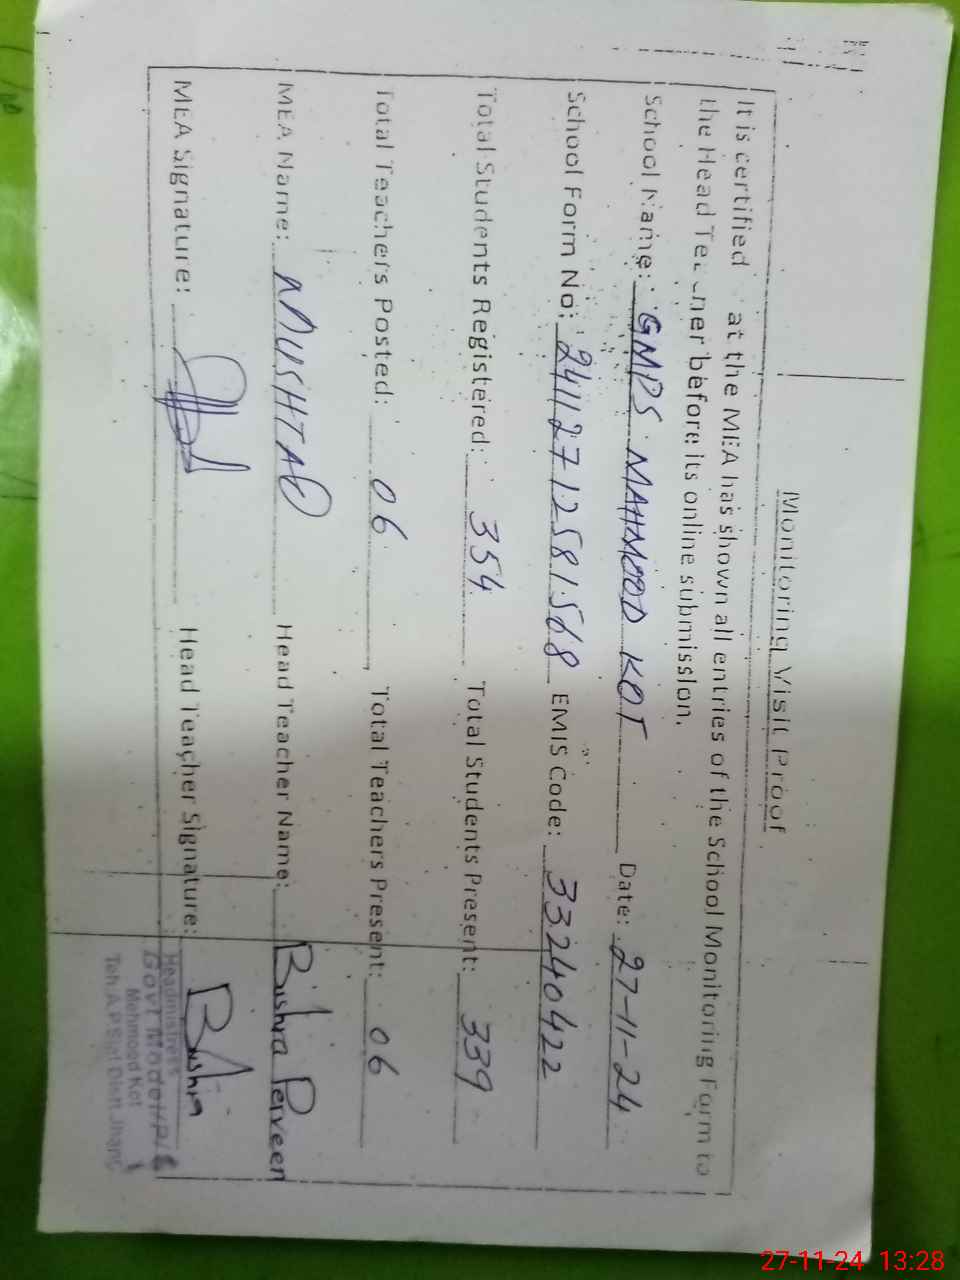 Monitoring Visit Proof
It is certified at the MEA has shown all entries of the School Monitoring Form to
the Head Te ner before its online submission.
School Name: GMPS MAHMOOD KOT Date: 27-11-24
School Form No: 241127 12581568 EMIS Code: 33240422
Total Students Registered: 354 Total Students Present: 339
Total Teachers Posted: 06 Total Teachers Present: 06
MEA Name: Head Teacher Name: Bushra Perveen
MEA Signature: Head Teacher Signature: Bushra
Headmistress
Govt Model P/S
Mehmood Kot
Teh: A.P.Sial Distt. Jhang
27-11-24 13:28